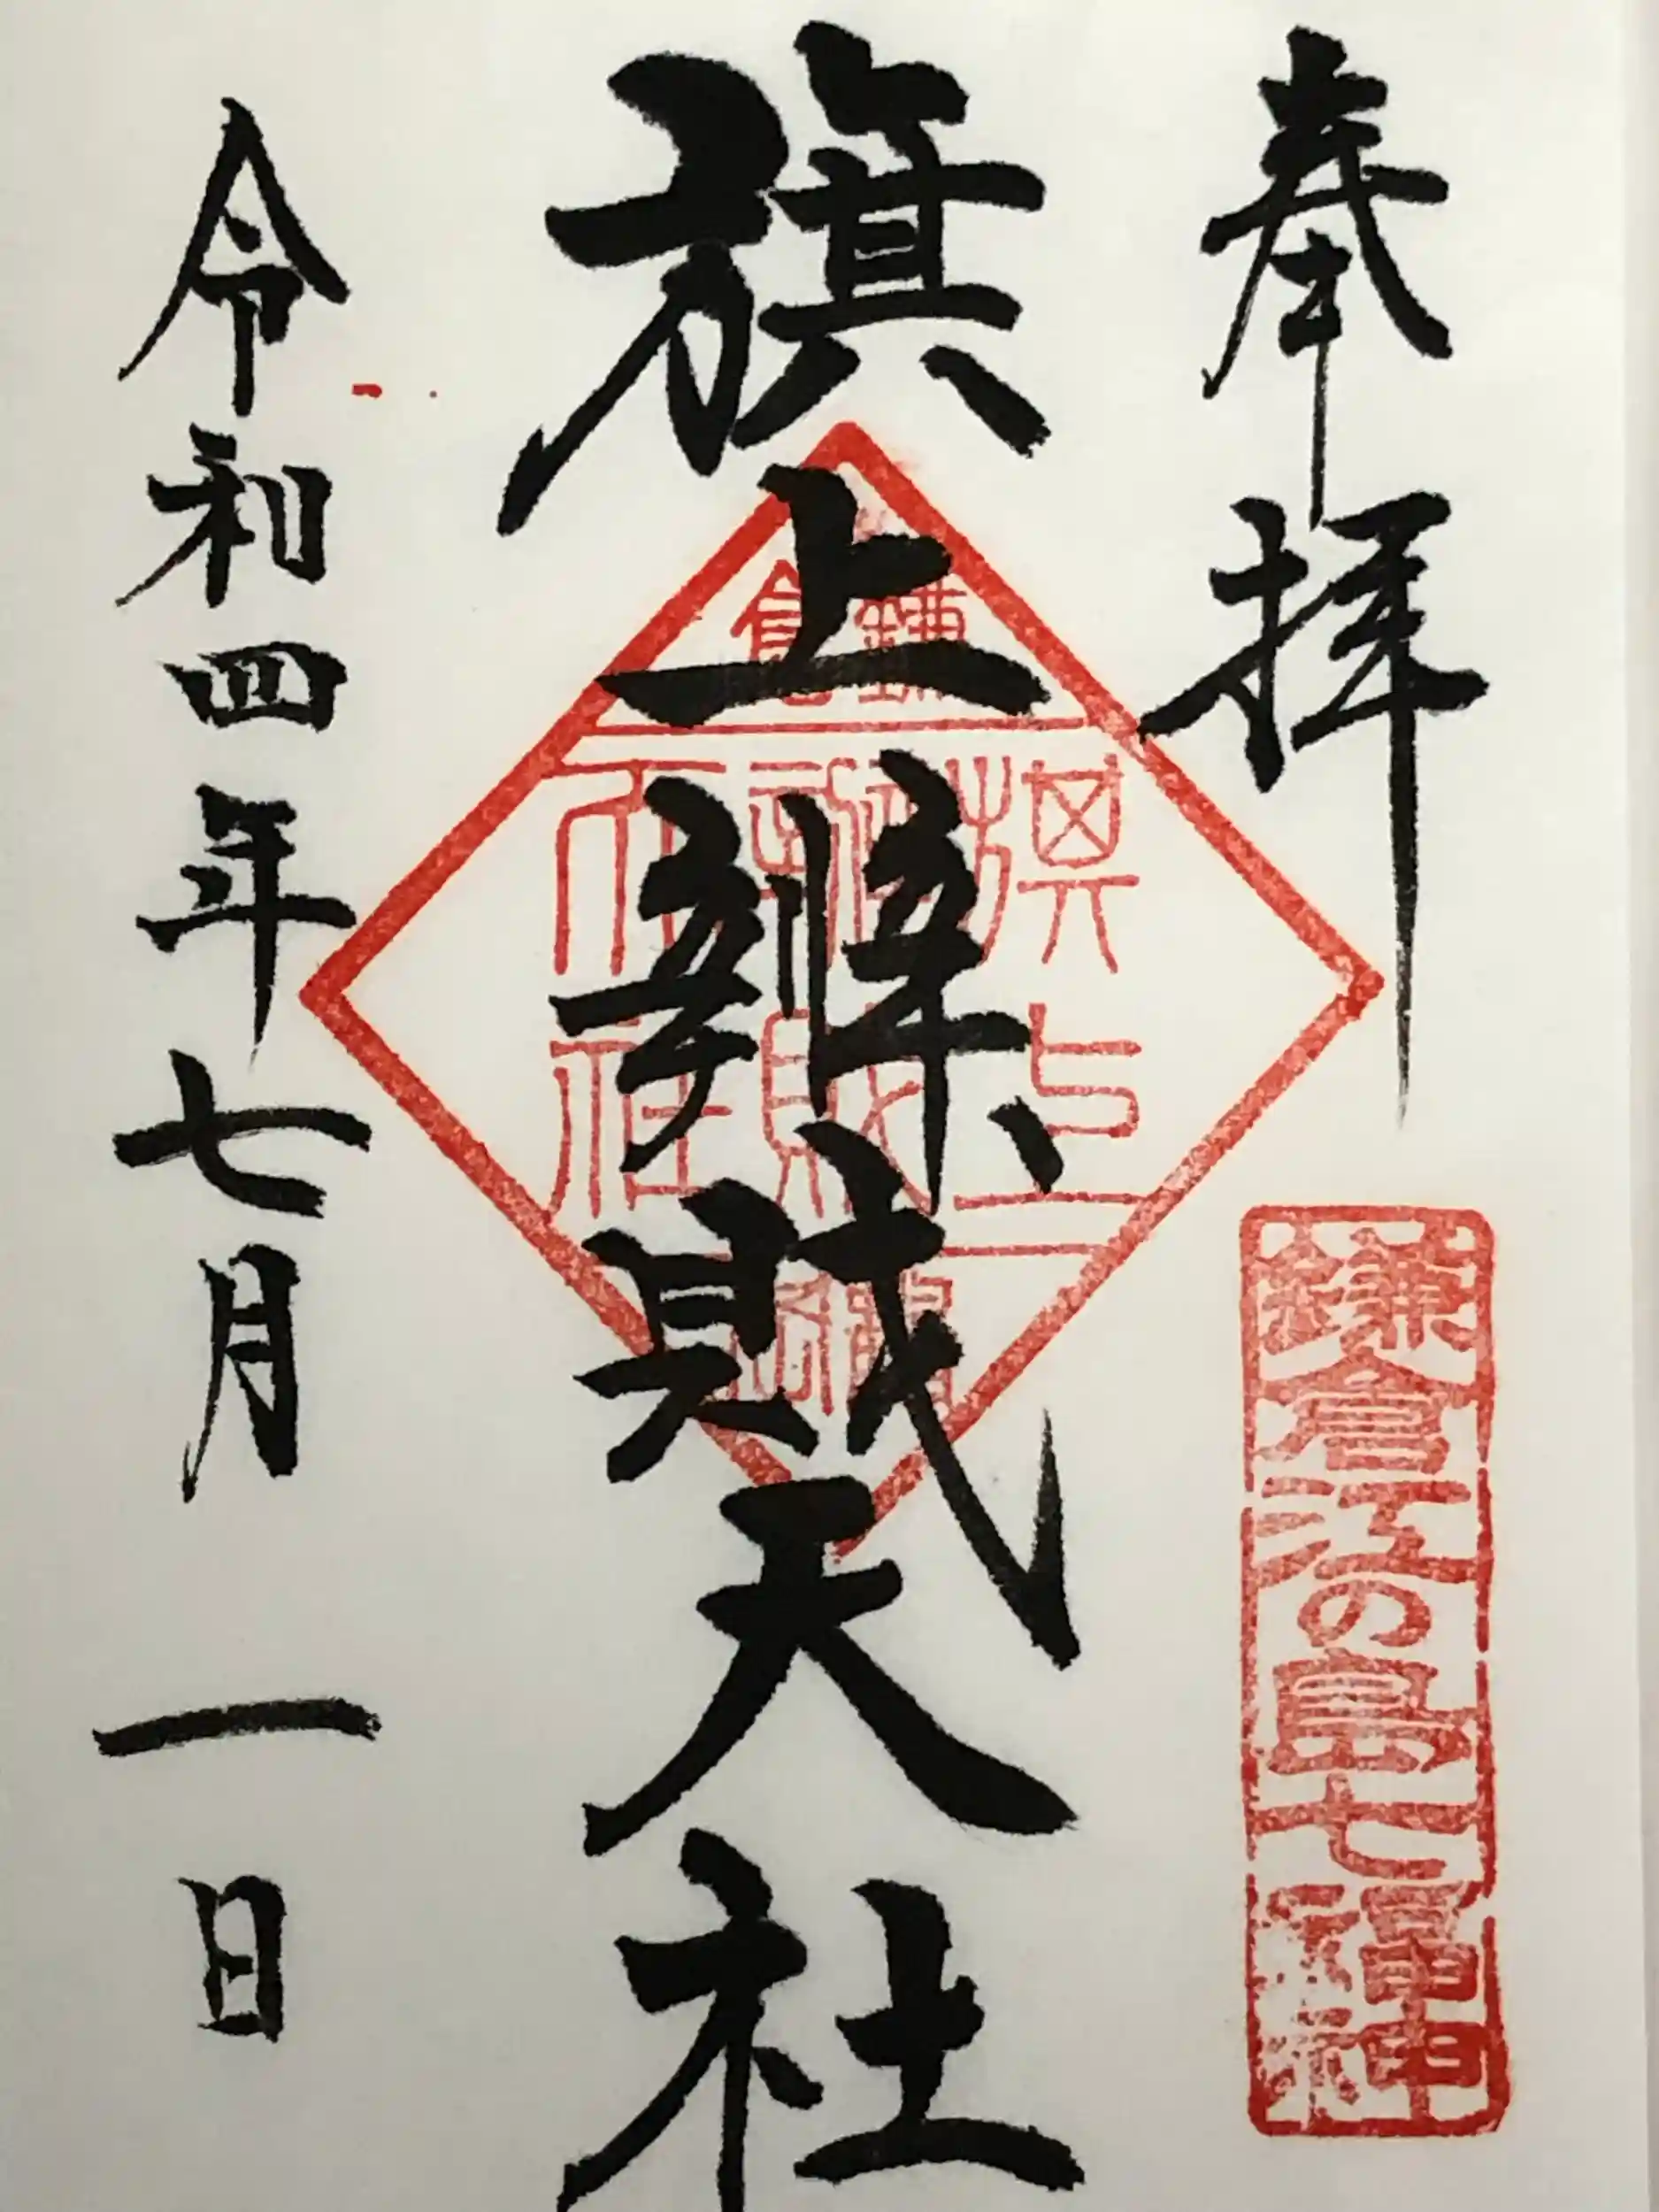 奉拝
鎌倉江の島七福神
旗上辨財天社
鎌倉
旗上
辨財
天社
令和四年七月一日